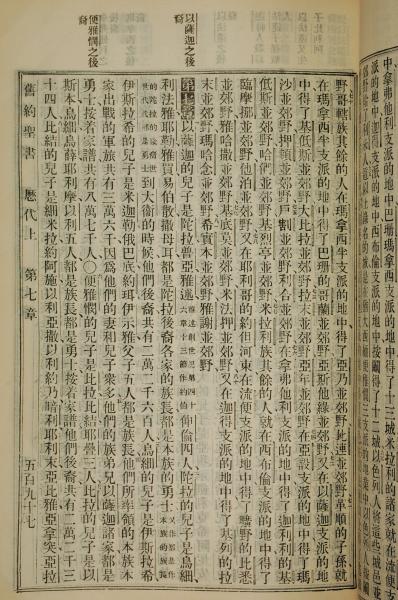 中拿弗他利支派的地中巴珊瑪拿西支派的地中得了十三城米拉利的諸家
野哥轄族其餘的人在瑪拿西半支派的地中得了亞乃並郊野比連並郊野革順的子孫就
在瑪拿西半支派的地中得了巴珊的哥蘭並郊野亞斯他綠並郊野又在以薩迦支派的地
中得了基低斯並郊野大比拉並郊野拉末並郊野亞年並郊野在亞設支派的地中得了瑪
沙並郊野押頓並郊野戶割並郊野利合並郊野在拿弗他利支派的地中得了迦利利的基
低斯並郊野哈們並郊野基烈亭並郊野米拉利族其餘的人就在西布倫支派的地中得了
臨摩挪並郊野他泊並郊野又在耶利哥的約但河東在流便支派的地中得了曠野的比悉
並郊野雅哈撒並郊野基底莫並郊野米法押並郊野又在迦得支派的地中得了基列的拉
末並郊野瑪哈念並郊野希實本並郊野雅謝並郊野
以薩迦之後裔
第七章以薩迦的兒子是陀拉普亞雅述雅述創世記第四十六章十三節作約伯伸倫四人陀拉的兒子是烏細
利法雅耶利雅買伯散撒母耳都是陀拉後裔各家的族長都是本族的勇士
到大衛的時候他們後裔共有二萬二千六百人烏細的兒子是伊斯拉希
伊斯拉希的兒子是米迦勒俄巴底約珥伊示雅父子五人都是族長他們所率領的本族本
家出戰的軍旅共有三萬六千因爲他們的妻和兒子衆多他們的族弟兄以薩迦諸家都是
勇士按着家譜共有八萬七千人〇便雅憫的兒子是比拉比結耶疊三人比拉的兒子是以
便雅憫之後裔
斯本烏細烏薛耶利摩以利五人都是族長都是勇士按着家譜他們後裔共有二萬二千三
十四人比結的兒子是細米拉約阿施以利亞撒以利約乃暗利耶利末亞比雅亞拿突亞拉
舊約聖書 歷代上 第七章 五百九十七